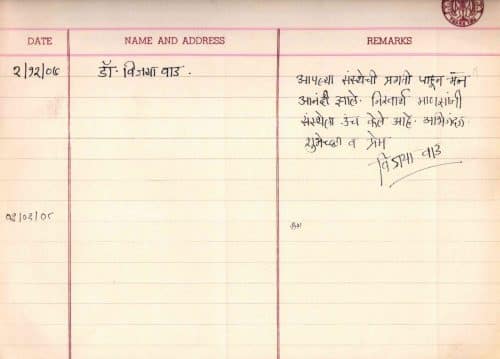 DATE NAME AND ADDRESS REMARKS
२/१२/०४ डॉ. विजया वाड. आपल्या संस्थेची प्रगती पाहून मन
आनंदी झाले. निस्वार्थ माणसांनी
संस्थेला उंच केले आहे. अभिनंदन
शुभेच्छा व प्रेम
विजया वाड